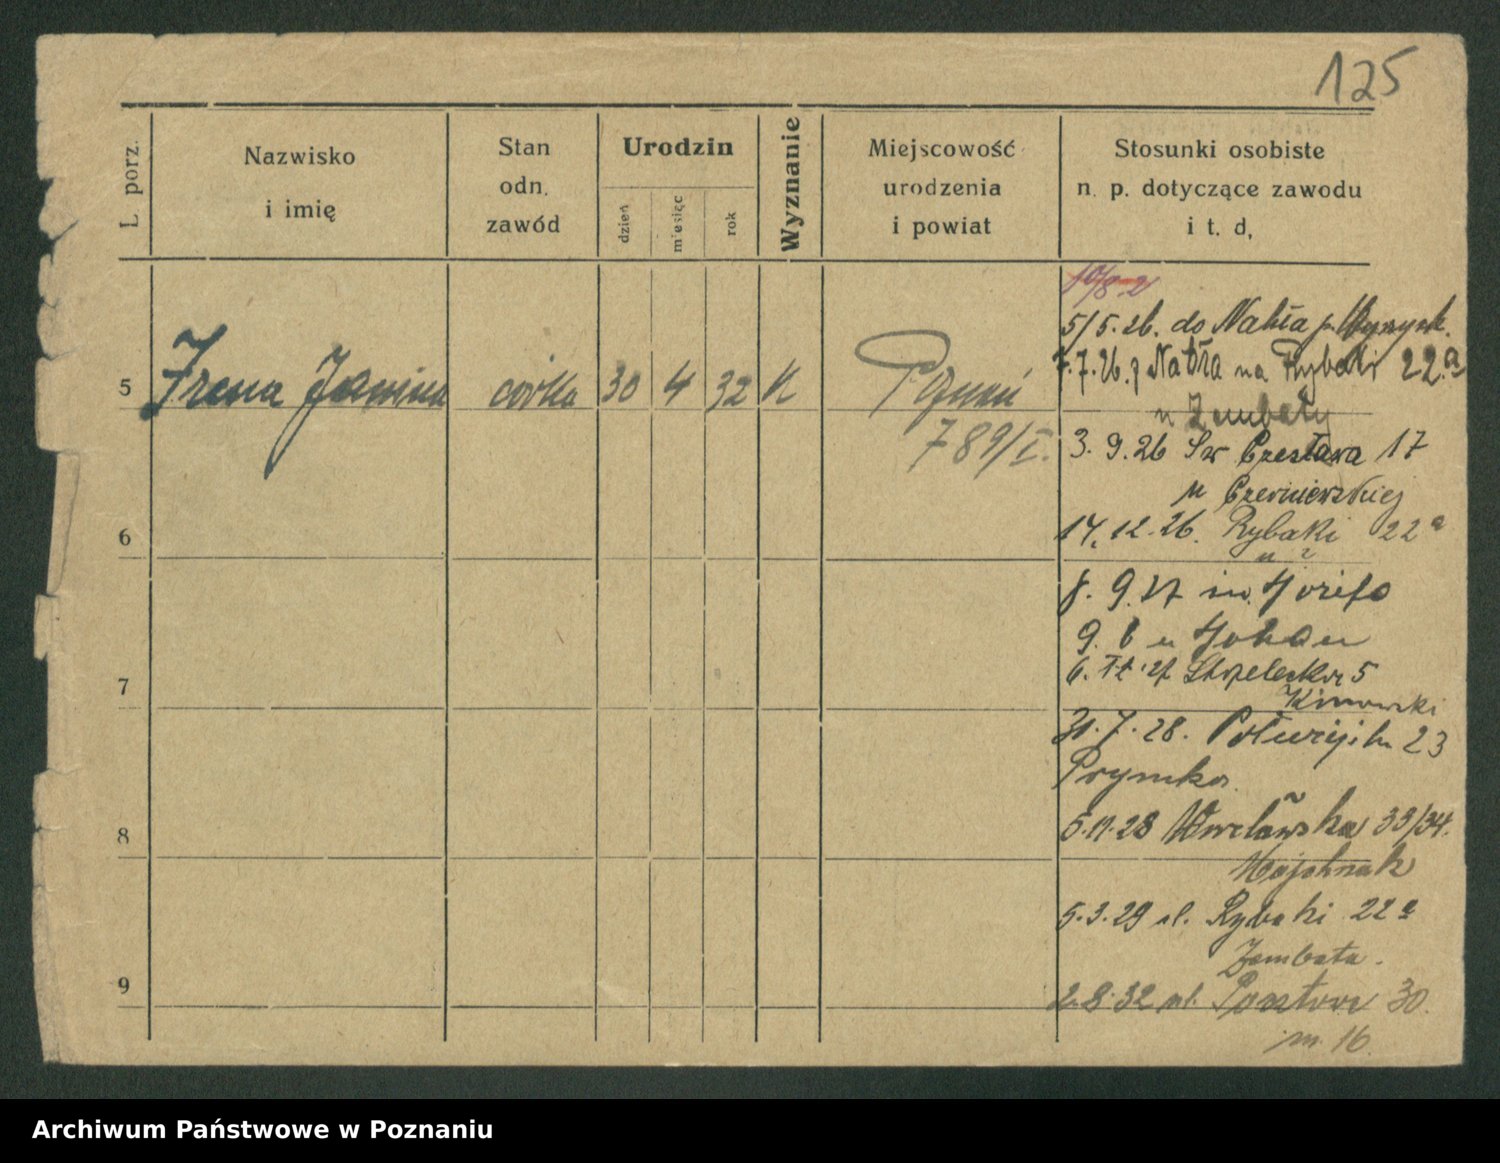 125
L. porz.
Nazwisko
i imię
Stan
odn.
zawód
Urodzin
dzień
miesiąc
rok
Wyznanie
Miejscowość
urodzenia
i powiat
Stosunki osobiste
n. p. dotyczące zawodu
i t. d,
5
Irena Janina
córka
30
4
32
K
Poznań
789/I.
6
7
8
9
5/5.26. do Nakła p. Wyrzysk.
7.7.26. z Nakła na Rybaki 22.a
u Zembaty
3. 9. 26 Św Czesława 17
u Czerniewskiej
14. 12. 26. Rybaki 22 a
8. 9. 27 św. Józefa
9. 6 u
6. 12 27 Strzelecka 5
31. 7. 28. Półwiejska 23
Prymka
5.11.28 Wrocławska 33/34.
5.3.29 ul. Rybaki 22 a
Zembata.
2.8.32 ul. Pocztowa 30.
m. 16.
Archiwum Państwowe w Poznaniu